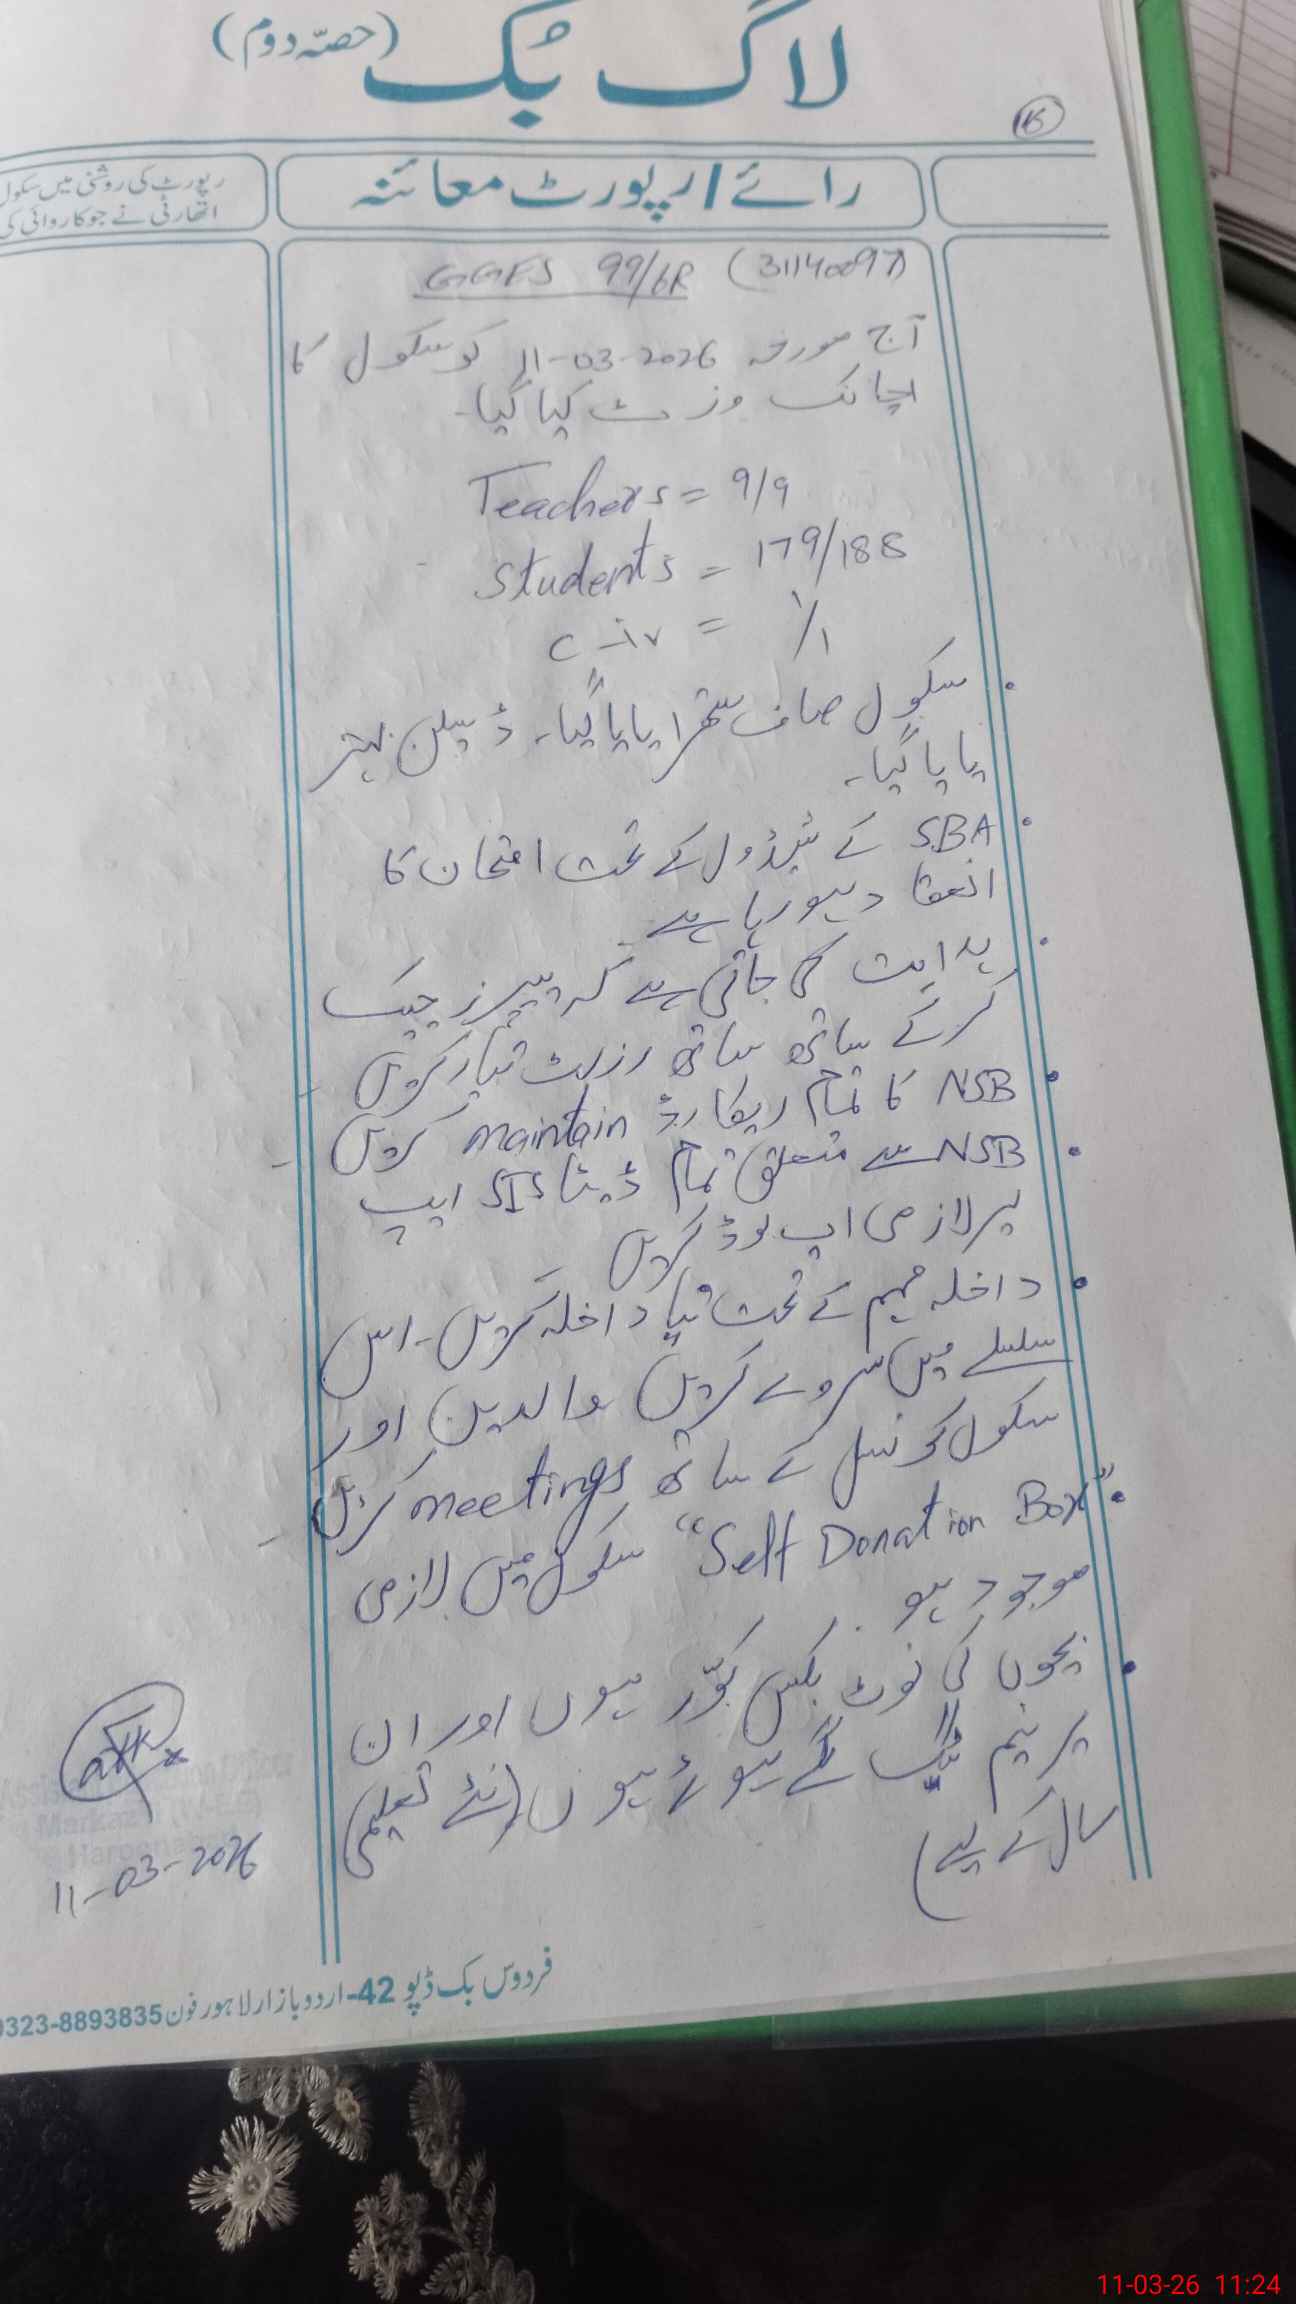 لاگ بک (حصّہ دوم)
رائے / رپورٹ معائنہ
رپورٹ کی روشنی میں سکول
اتھارٹی نے جو کاروائی کی
GGES 99/6R (31140097)
آج مورخہ 11-03-2026 کو سکول کا
اچانک وزٹ کیا گیا۔
Teachers = 9/9
Students = 179/188
C-iv = 1/1
سکول صاف ستھرا پایا گیا۔ ڈسپلن بہتر
پایا گیا۔
SBA کے شیڈول کے تحت امتحان کا
انعقاد ہو رہا ہے
ہدایت کی جاتی ہے کہ پیپرز چیک
کر کے ساتھ ساتھ رزلٹ تیار کریں
NSB کا تمام ریکارڈ maintain کریں
NSB سے متعلق تمام ڈیٹا SIS ایپ
پر لازمی اپ لوڈ کریں
داخلہ مہم کے تحت نیا داخلہ کریں۔ اس
سلسلے میں سروے کریں والدین اور
سکول کونسل کے ساتھ meetings کریں
"Self Donation Box" سکول میں لازمی
موجود ہو
بچوں کی نوٹ بکس کوّر ہوں اور ان
پر نیم ٹیگ لگے ہوئے ہوں (نئے تعلیمی
سال کے لیے)
11-03-2026
فردوس بک ڈپو 42-اردو بازار لاہور فون 0323-8893835
11-03-26 11:24